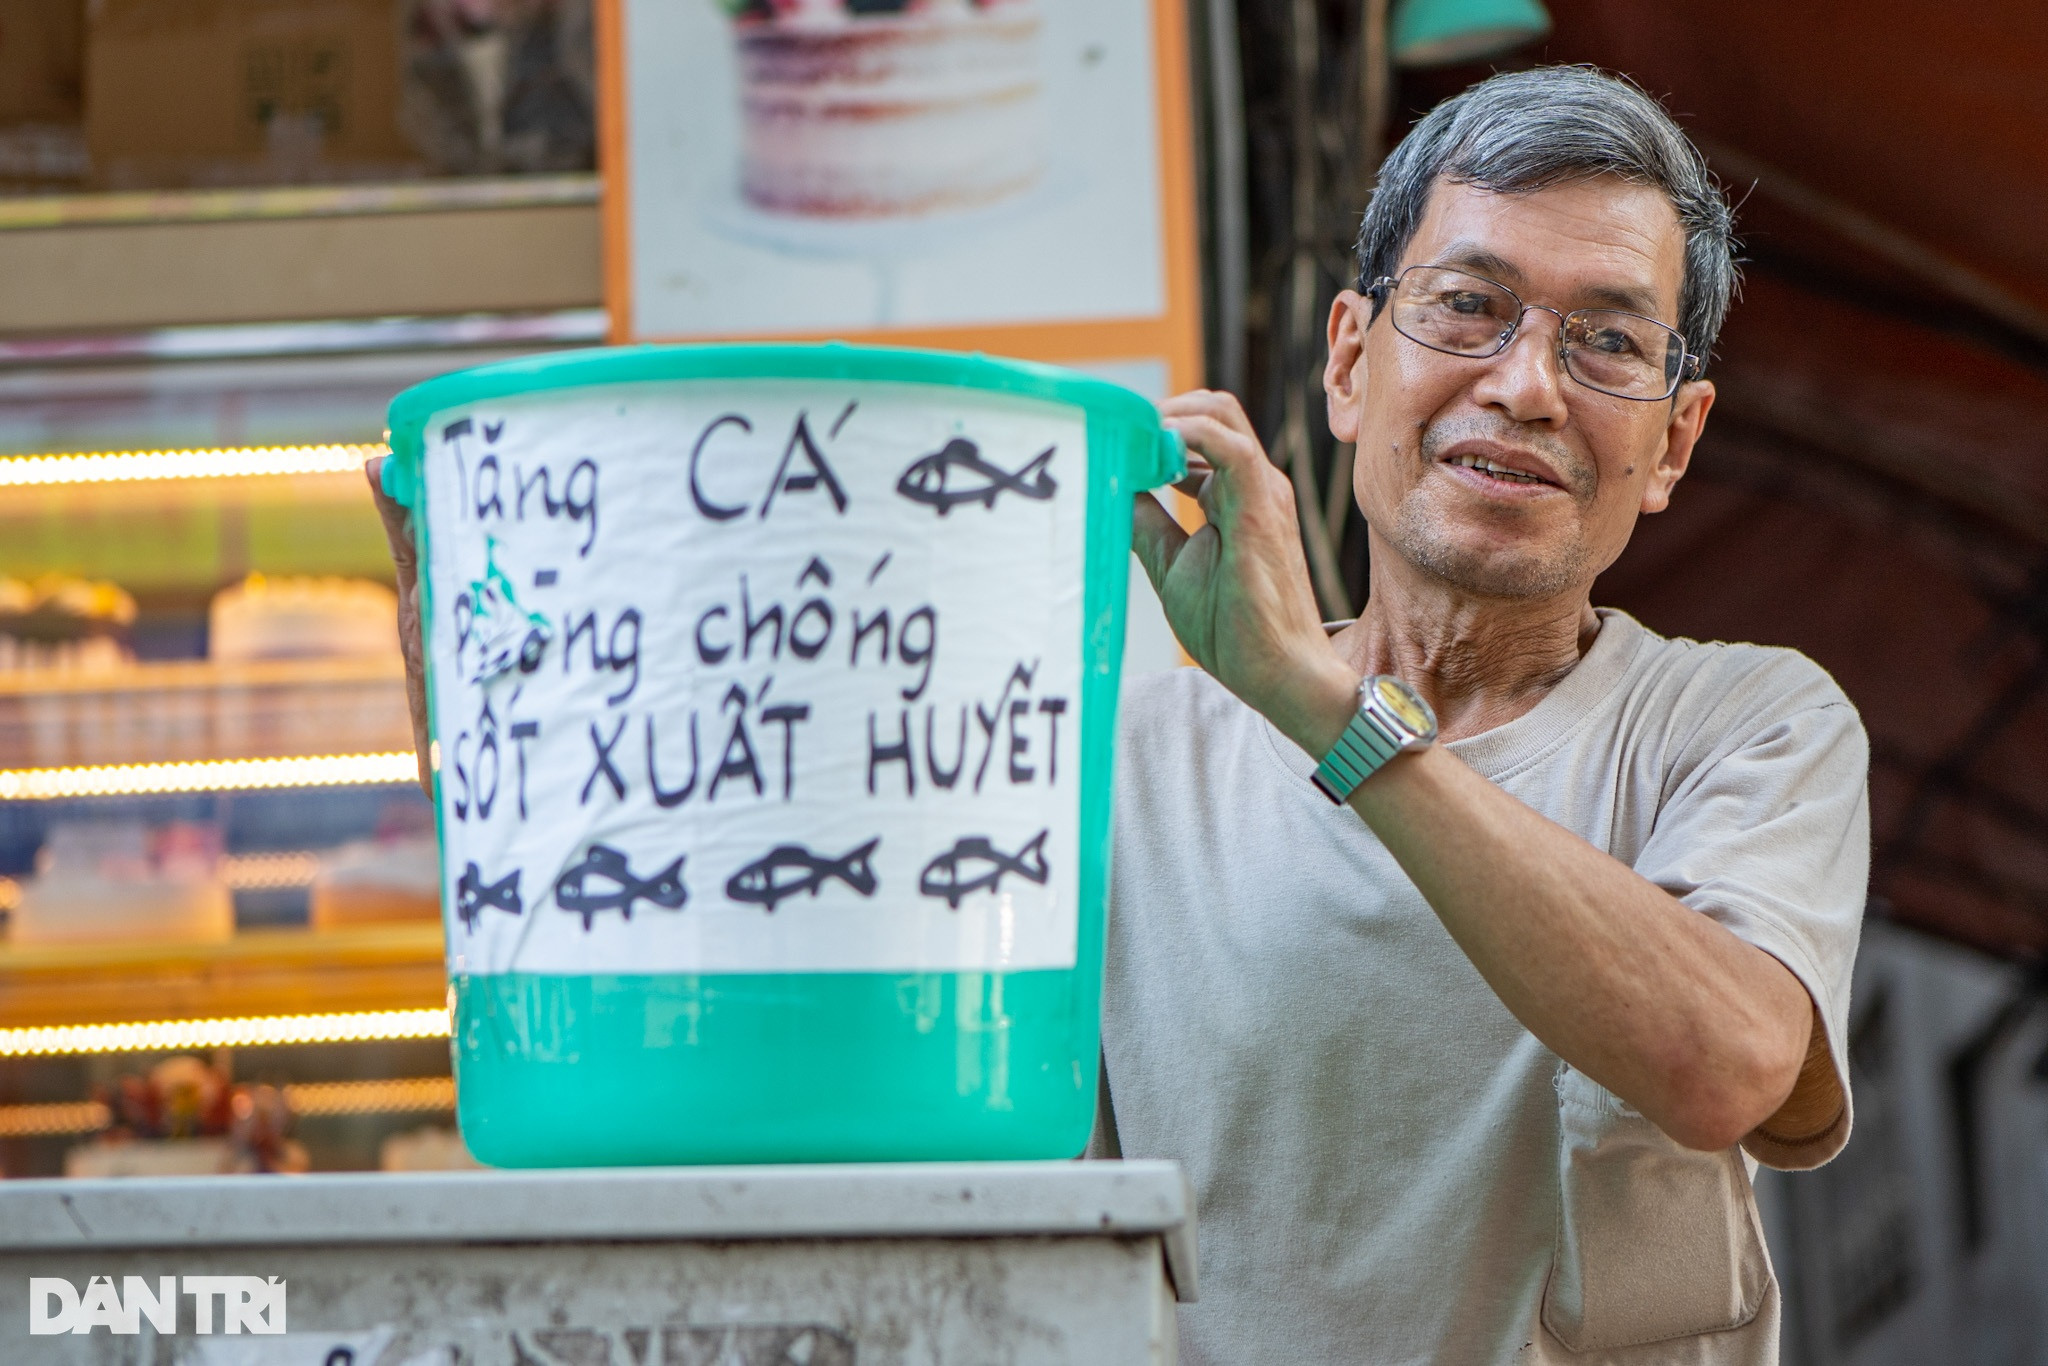 Tặng CÁ
Phòng chống
SỐT XUẤT HUYẾT
DÂN TRÍ